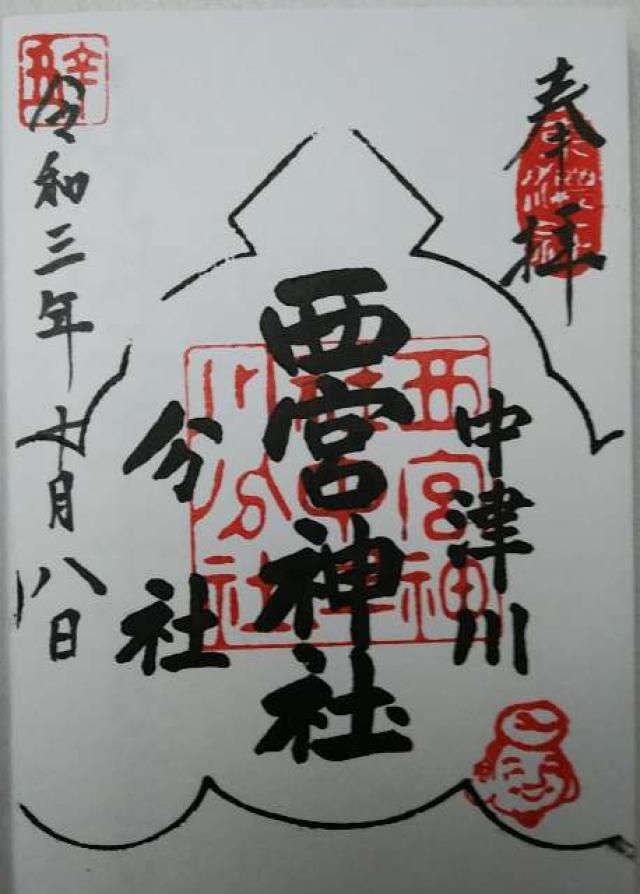 奉拝
中津川
西宮神社
分社
令和三年十月八日
西宮神
社中津
川分社